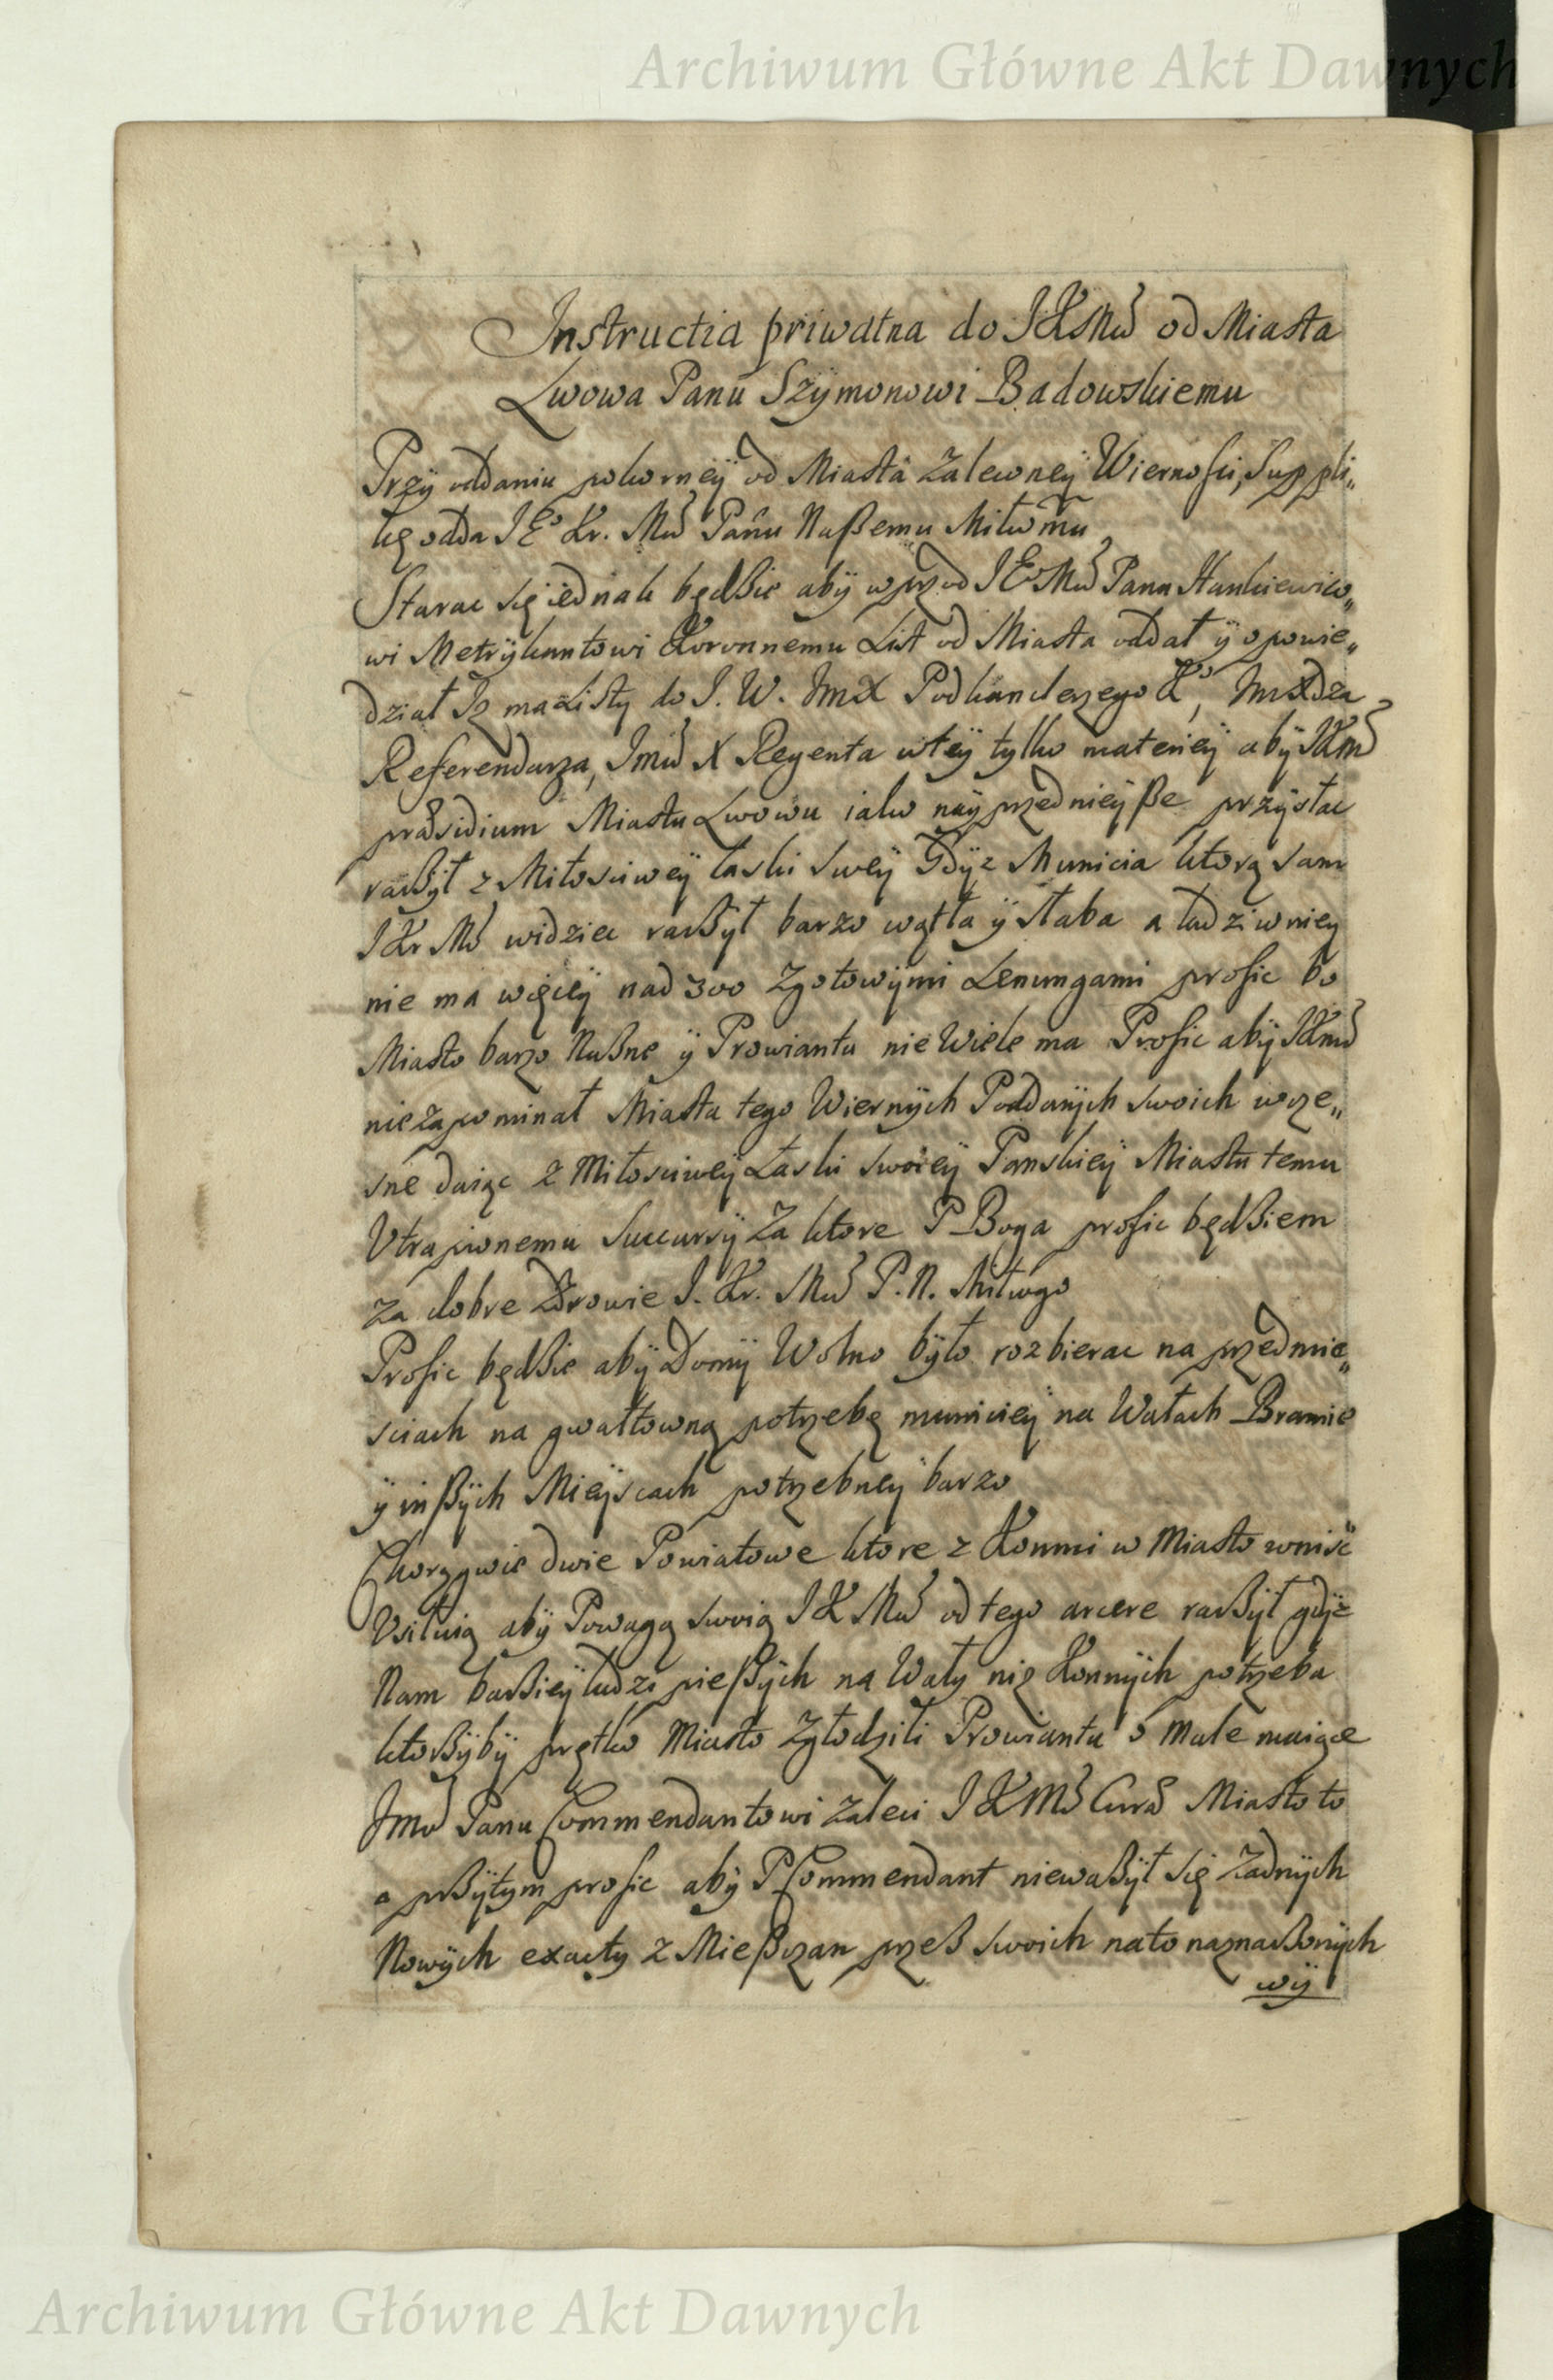 Archiwum Główne Akt Dawnych
Instructia priwatna do JKMći od Miasta
Lwowa Panu Szÿmonowi Badowskiemu
Przÿ oddaniu pokornеÿ od Miasta Zalewneÿ Wiernosci, Suppli„
kę odda JEº Kr. Mći Panu Naßemu Miłõmu
Starac się iednak będßie abÿ wprzod JEºMći Panu Hankiewico„
wi Metrÿkantowi Koronnemu List od Miasta oddał ÿ opowie„
dział Iz ma Listy do J. W. ImX Podkanclerzego Kº, ImXdza
Referendarza, Imći X Regenta wteÿ tylko materieÿ abÿ JKmć
præsidium Miastu Lwowu iako naÿprzednieÿße przÿsłac
raćßÿł z Miłosciweÿ łaski sweÿ Gdÿz Municia ktorą sam
JKr Mć widziec raćßÿł barzo wątła ÿ słaba a ludzi wnieÿ
nie ma więceÿ nad 300 Zgotowÿmi Lenungami prosic bo
Miasto barzo Nußne ÿ Prowiantu nie Wiele ma Prosic abÿ JKmć
niezapominał Miasta tego Wiernÿch Poddanÿch swoich wcze„
sne daiąc z Miłosciweÿ Łaski swoieÿ Panskieÿ Miastu temu
Utrapionemu Succursÿ Za ktore P Boga prosic będßiem
za dobre Zdrowie J. Kr. Mći P. N. Miłwgo
Prosic będßie abÿ Domÿ Wolno bÿło rozbierac na przedmie„
sciach na gwałtowną potrzebę municieÿ na Wałach Bramie
ÿ inßÿch Mieÿscach potrzebneÿ barzo
Chorągwie dwie Powiatowe ktore z Konmi w Miasto wniśc
Vsiłuią abÿ Powagą swoią JK Mć od tego arcere raćßÿł gdÿz
Nam barßieÿ ludzi pießÿch na Wały niz Konnÿch potrzeba
ktorßÿbÿ prętko Miasto Zgłodzili Prowiantu o male maiące
Imći Panu Commendantowi zaleci JKMć Curæ Miasto to
a prßÿtym prosic abÿ P Commendant niewaßÿł się Zadnÿch
Nowÿch exacty z Mießczan przeß swoich nato naznaćßonÿch
wÿ
Archiwum Główne Akt Dawnych